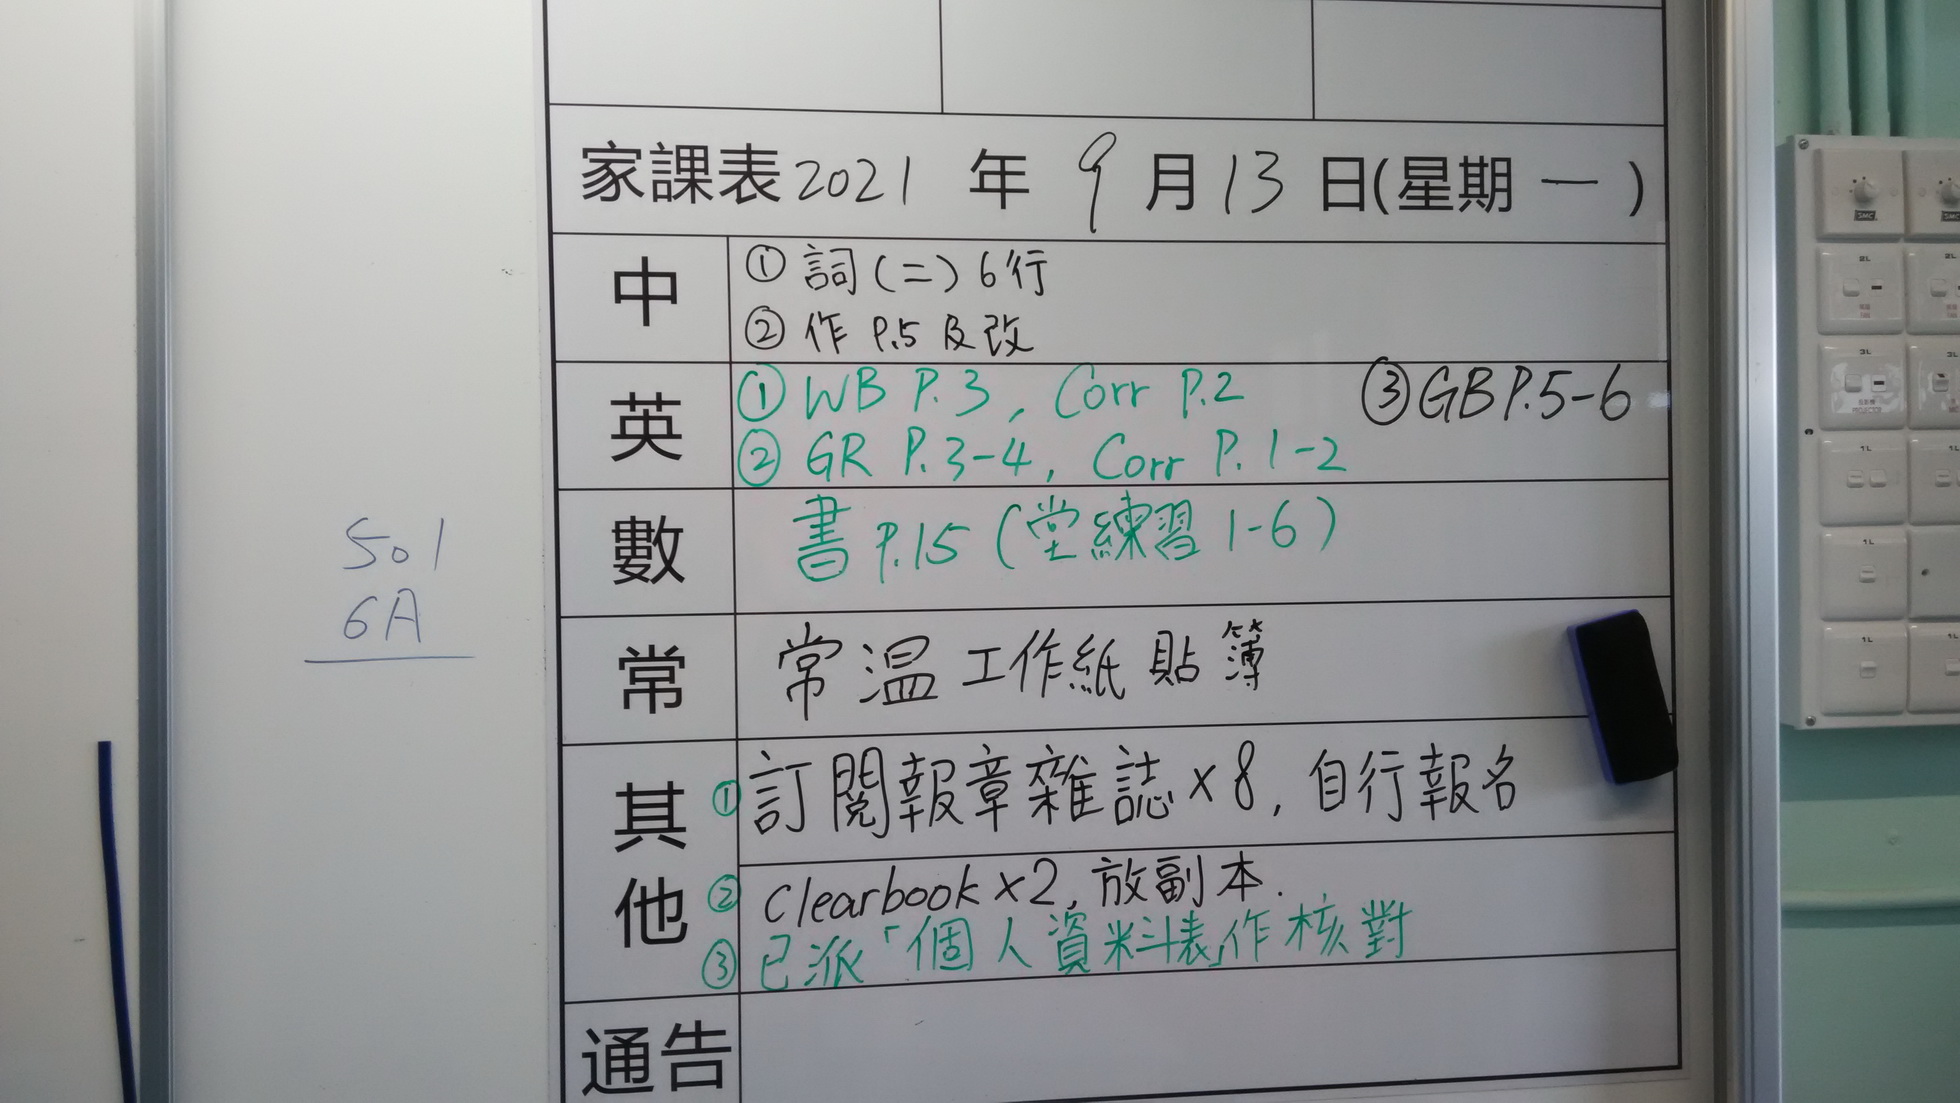 家課表2021 年 9 月 13 日(星期 一 )
中
① 詞(二) 6行
② 作 P.5 及改
英
① WB P.3, Corr P.2
③ GB P.5-6
② GR P.3-4, Corr P.1-2
數
書 P.15 (堂練習 1-6)
501
6A
常
常温工作紙 貼簿
其他
① 訂閱報章雜誌×8, 自行報名
② Clearbook×2, 放副本.
③ 已派「個人資料表」作核對
通告